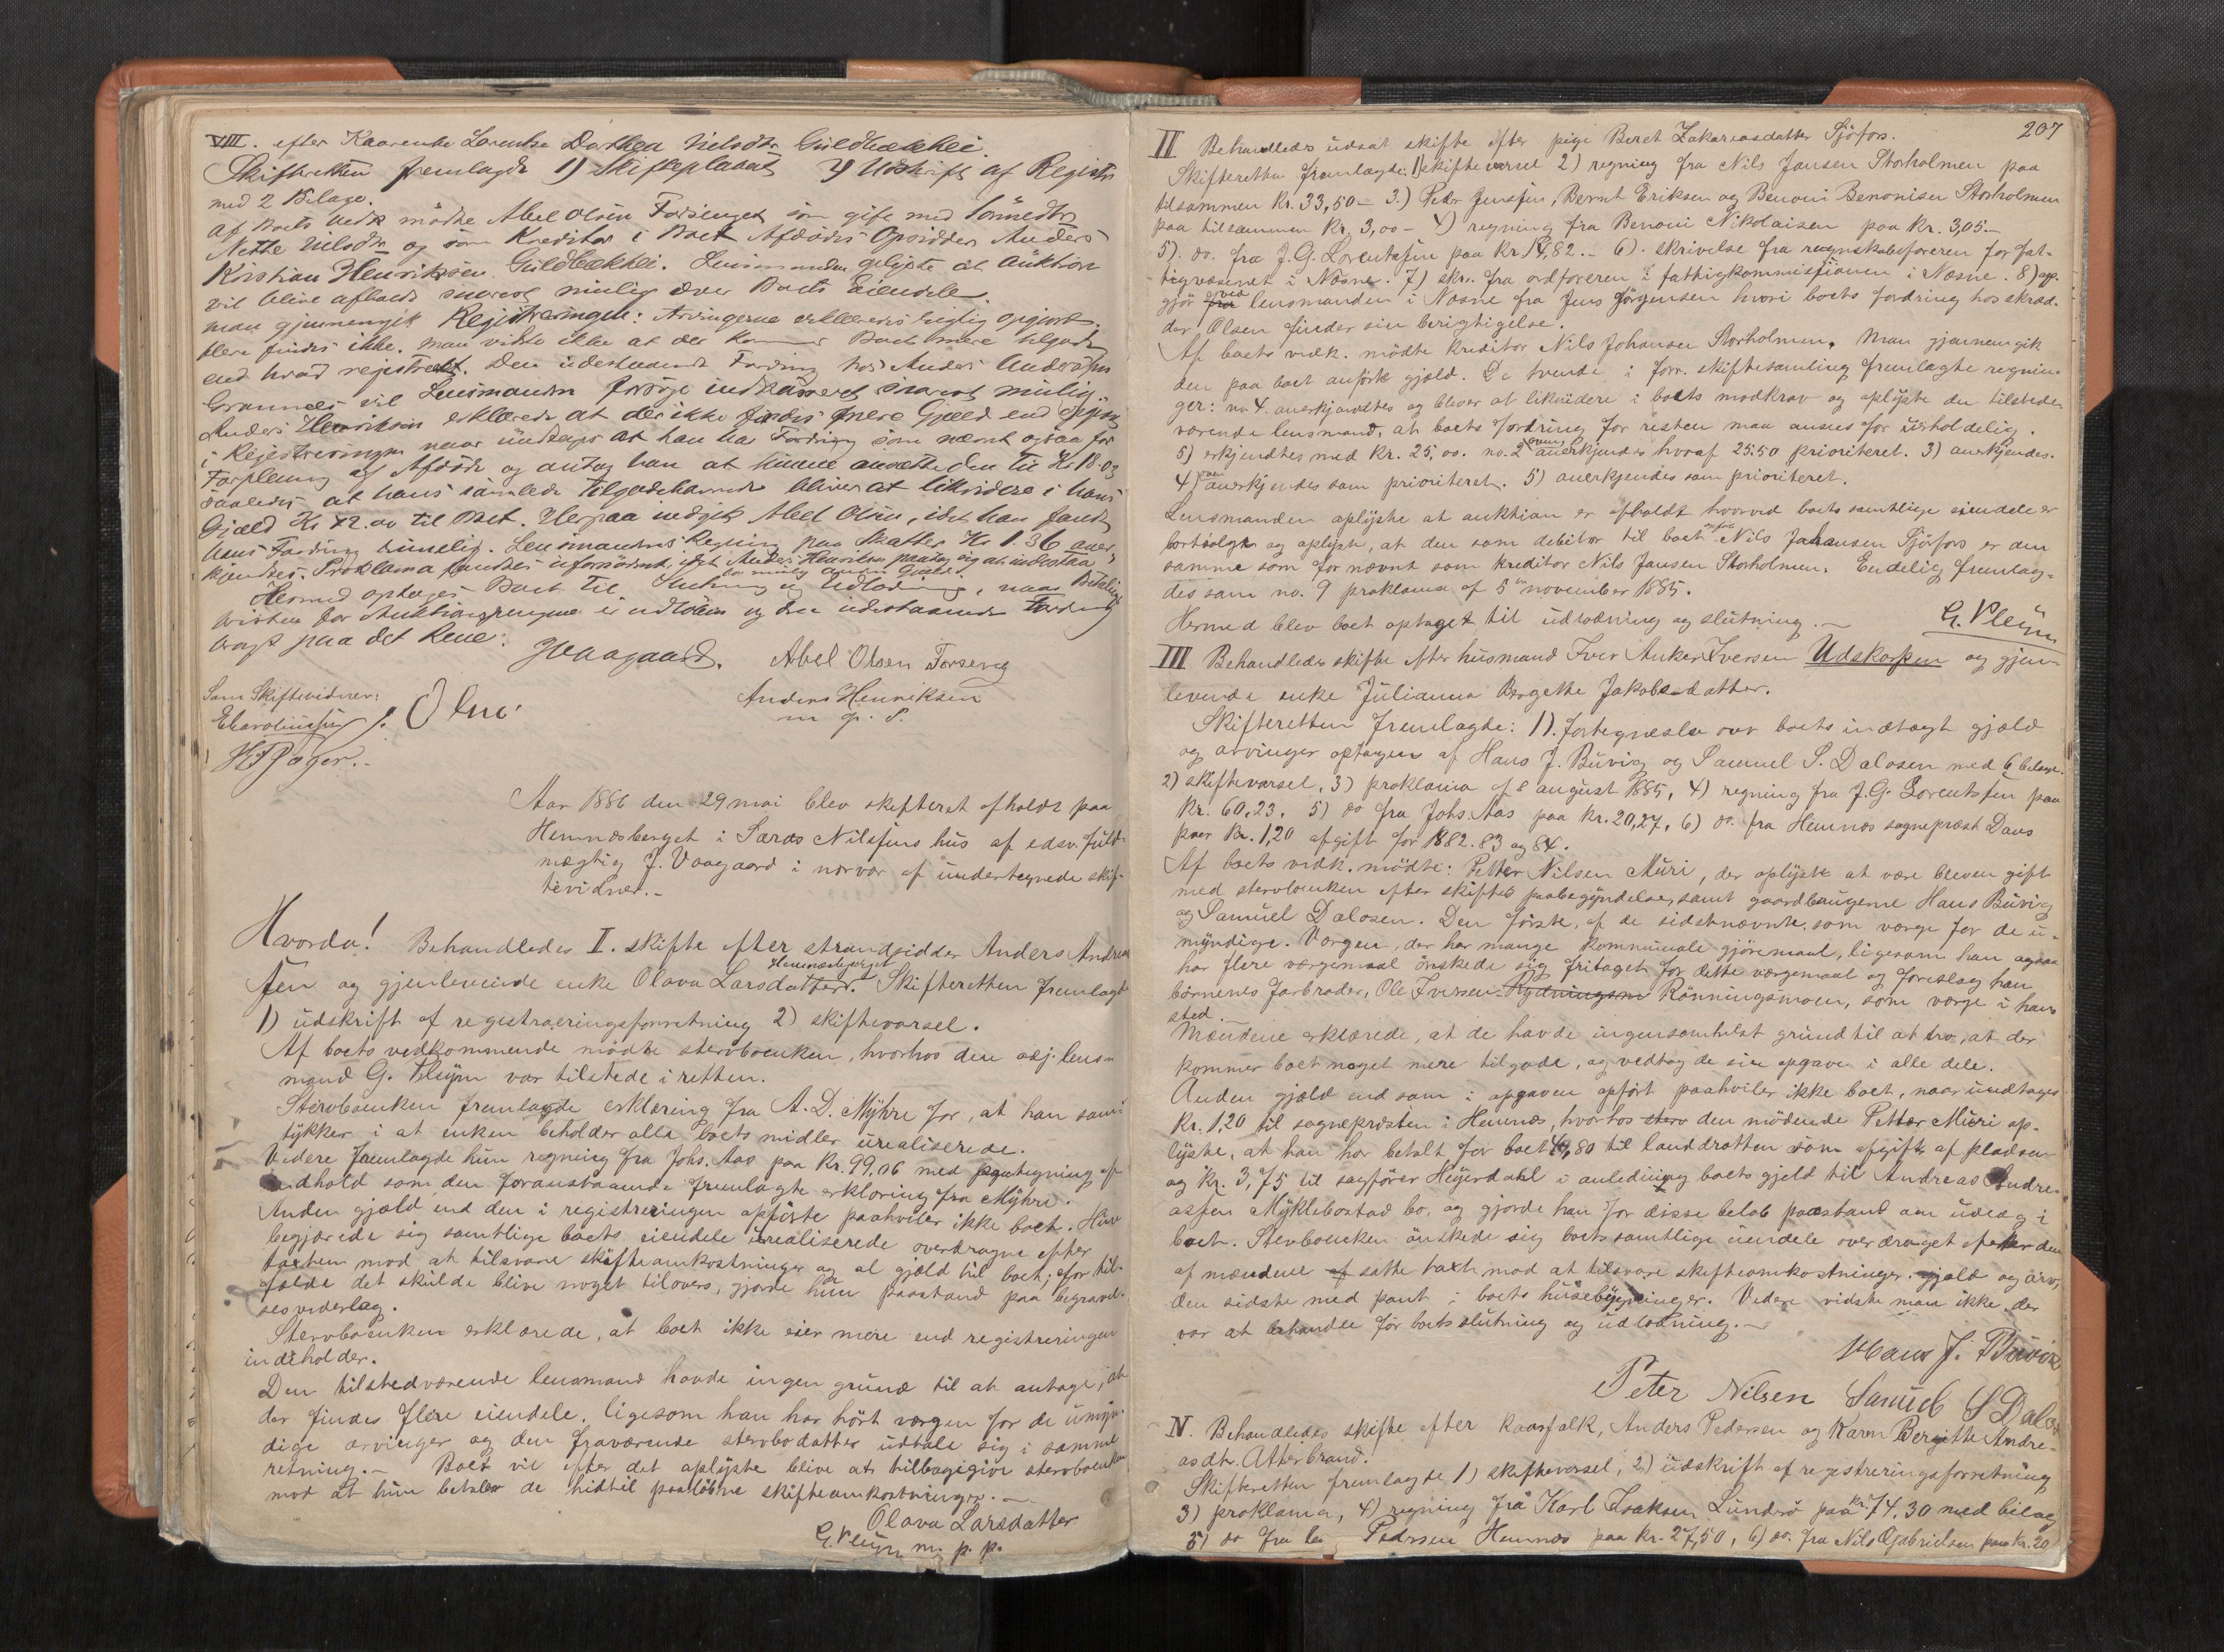 VIII. efter Kaarenke Lorentze Dorthea Nilsdtr Guldbækhei.
Skifteretten fremlagde 1) Skifteplacat 2) Udskrift af Registr
med 2 Bilage.
Af Boets Vedk mødte Abel Olsen Forseng som gift med Sønnedtr
Nette Nilsdr og som Kreditor i Boet Afdødes Opsidder Anders
Kristian Henriksen Guldbækhei. Lensmanden oplyste at Auktion
vil blive afholdt snarest mulig over Boets Eiendele.
Man gjennemgik Registreringen: Arvingerne erklæredes rigtig opgivet.
flere findes ikke. Man vidste ikke at der kommer Boet mere tilgode
end hvad registreret. Den udestaaende Fordring hos Anders Andersen
Grannes vil Lensmanden sørge indkasseret snarest mulig.
Anders Henriksen erklærede at der ikke findes mere Gjæld end opgivet
i Registreringen naar undtages at han har Fordring som nævnt ogsaa for
Forpleining af Afdøde og antog han at kunne ansætte den til Kr 18.03
saaledes at hans samlede Tilgodehavende bliver at likvidere i hans
Gjæld Kr 42.00 til Boet. Herpaa indgik Abel Olsen, idet han fandt
hans Fordring rimelig. Lensmandens Regning paa Skatter Kr 1.36 aner-
kjendtes. Proklama fandtes ufornødent, idet Anders Henriksen paatog sig at indestaa
for mulig anden Gjæld.
Hermed optages Boet til Slutning og Udlodning, naar Betalings-
fristen for Auktionspengene er udløben og den udestaaende Fordring
bragt paa det Rene.
JVaagaard. Abel Olsen Forseng
Som Skiftevidner: Anders Henriksen
m. p. P.
HJPager.
Aar 1886 den 29 mai blev skifteret afholdt paa
Hemnesberget i Søras Nilsens hus af edsv. fuld-
mægtig J. Vaagaard i nærvær af undertegnede skif-
tevidner.-
Hvorda! Behandledes I. skifte efter strandsidder Anders Andrea
sen og gjenlevende enke Olava Larsdatter. Hemnesberget Skifteretten fremlagde
1) udskrift af registreringsforretning 2) skiftevarsel.
Af boets vedkommende mødte stervboenken, hvorhos den adj. lens-
mand G. Pleym var tilstede i retten.
Stervboenken fremlagde erklæring fra A. D. Myhre for, at han sam-
tykker i at enken beholder alle boets midler urealiserede.
Videre fremlagde hun regning fra Johs. Aas paa kr. 99,06 med paategning af
indhold som den foranstaaende fremlagte erklæring fra Myhre.
Anden gjæld end den i registreringen opførte paahviler ikke boet. Hun
begjærede sig samtlige boets eiendele urealiserede overdragne efter
taxten mod at tilsvare skifteomkostninger og al gjæld til boet; for til-
fælde det skulde blive noget tilovers, gjorde hun paastand paa begravel-
sesvederlag.
Stervboenken erklærede, at boet ikke eier mere end registreringen
indeholder.
Den tilstedværende lensmand havde ingen grund til at antage, at
der findes flere eiendele, ligesom han har hørt værgen for de umyn-
dige arvinger og den fraværende stervbodatter udtale sig i samme
retning.- Boet vil efter det oplyste blive at tilbagegive stervboenken
mod at hun betaler de hidtil paaløbne skifteomkostninger.-
Olava Larsdatter
G. Pleym m. p. p.
207
II Behandledes udsat skifte efter pige Beret Zakariasdatter Sjøfors.
Skifteretten fremlagde: 1) skiftevarsel 2) regning fra Nils Jansen Storholmen paa
tilsammen kr. 33,50 - 3.) Peder Jensen, Bernt Eriksen og Benoni Benonisen Storholmen
paa tilsammen kr. 3,00 - 4) regning fra Benoni Nikolaisen paa kr. 3,05.-
5). do. fra J. G. Lorentsen paa kr. 14,82.- 6). skrivelse fra regnskabsføreren for fat-
tigvæsenet i Næsne. 7) skr. fra ordføreren i fattigkommissionen i Næsne. 8) op-
gjør fra ved lensmanden i Næsne fra Jens Jørgensen hvori boets fordring hos skræd-
der Olsen finder sin berigtigelse.
Af boets vedk. mødte kreditor Nils Johansen Storholmen. Man gjennemgik
den paa boet anførte gjæld. De tvende i forr. skiftesamling fremlagte regnin-
ger: no. 4. anerkjendtes og bliver at likvidere i boets modkrav og oplyste den tilstede-
værende lensmand, at boets fordring for resten maa ansees for uerholdelig.
5) erkjendtes med kr. 25,00. no. 2 anerkjendes hvoraf 25.50 prioriteret. 3) anerkjendes.
4) anerkjendes som prioriteret. 5) anerkjendes som prioriteret.
Lensmanden oplyste at auktion er afholdt hvorved boets samtlige eiendele er
bortsolgte og oplyste, at den som debitor til boet Nils Johansen Sjøfors er den
samme som før nævnt som kreditor Nils Jansen Storholmen. Endelig fremlag-
des som no. 9 proklama af 5te november 1885.
Hermed blev boet optaget til udlodning og slutning.- G. Pleym
III Behandledes skifte efter husmand Iver Anker Iversen Udskorpen og gjen-
levende enke Julianna Bergette Jakobsdatter.
Skifteretten fremlagde: 1). fortegnelse over boets indtægt gjæld
og arvinger optagen af Hans J. Buvig og Samuel S. Dalosen med 6 bilage.
2) skiftevarsel, 3) proklama af 8 august 1885, 4) regning fra J. G. Lorentsen paa
kr. 60,23, 5) do fra Johs. Aas paa kr. 20,27, 6) do. fra Hemnes sogneprest Daus
paa kr. 1,20 afgift for 1882. 83 og 84.
Af boets vedk. mødte: Petter Nilsen Muri, der oplyste at være bleven gift
med stervboenken efter skiftets paabegyndelse, samt gaardbrugerne Hans Buvig
og Samuel Dalosen. Den første, af de sidstnævnte, som værge for de u-
myndige. Værgen, der har mange kommunale gjøremaal, ligesom han ogsaa
har flere værgemaal ønskede sig fritaget for dette værgemaal og foreslog han
børnenes farbroder, Ole Iversen Rydningsm Rønningsmoen, som værge i hans
sted.
Mændene erklærede, at de havde ingensomhelst grund til at tro, at der
kommer boet noget mere tilgode, og vedtog de sin opgave i alle dele.
Anden gjæld end som i opgaven opført paahviler ikke boet, naar undtages
kr. 1,20 til sognepresten i Hemnes, hvorhos sterv den mødende Petter Muri op-
lyste, at han har betalt for boet 4,80 til landdrotten som afgift af pladsen
og kr. 3,75 til sagfører Heyerdahl i anledning boets gjeld til Andreas Andre-
assen Myklebostad bo, og gjorde han for disse beløb paastand om udlæg i
boet. Stervboenken ønskede sig boets samtlige eiendele overdraget efter den
af mændene af satte taxt mod at tilsvare skifteomkostninger, gjæld og arv,
den sidste med pant i boets husebygninger. Videre vidste man ikke der
var at behandle før boets slutning og udlodning.-
Hans J. Buvig
Peter Nilsen Samuel S Dalos
IV. Behandledes skifte efter kaarfolk, Anders Pedersen og Karen Bergitte Andre-
asdtr. Atterbrand.
Skifteretten fremlagde 1) skiftevarsel, 2) udskrift af registreringsforretning
3) proklama, 4) regning fra Karl Isaksen Lunderø paa kr. 74.30 med bilag
5) do fra Pedersen Hemnes paa kr. 27,50, 6) do. fra Nils O Gabrielsen paa kr. 20